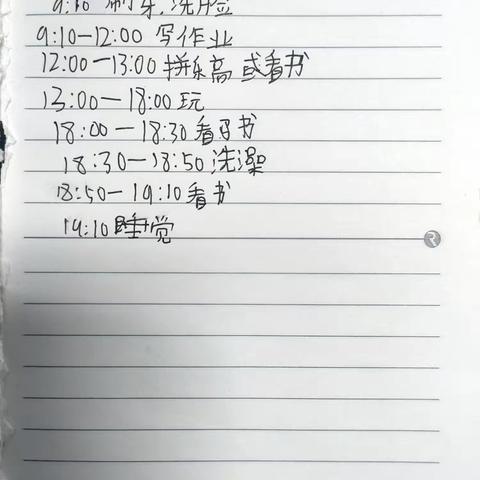 9:10 刷牙,洗脸
9:10—12:00 写作业
12:00—13:00 拼乐高 或看书
13:00—18:00 玩
18:00—18:30 看书
18:30—18:50 洗澡
18:50—19:10 看书
19:10 睡觉